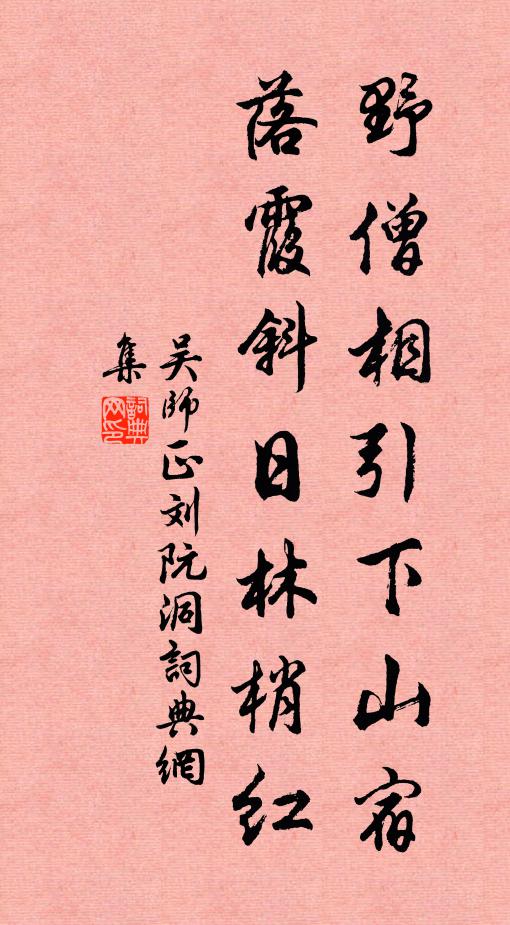 野僧相引下山宿
落霞斜日林梢红
吴師正刘阮洞詞典網
集
詞典网印